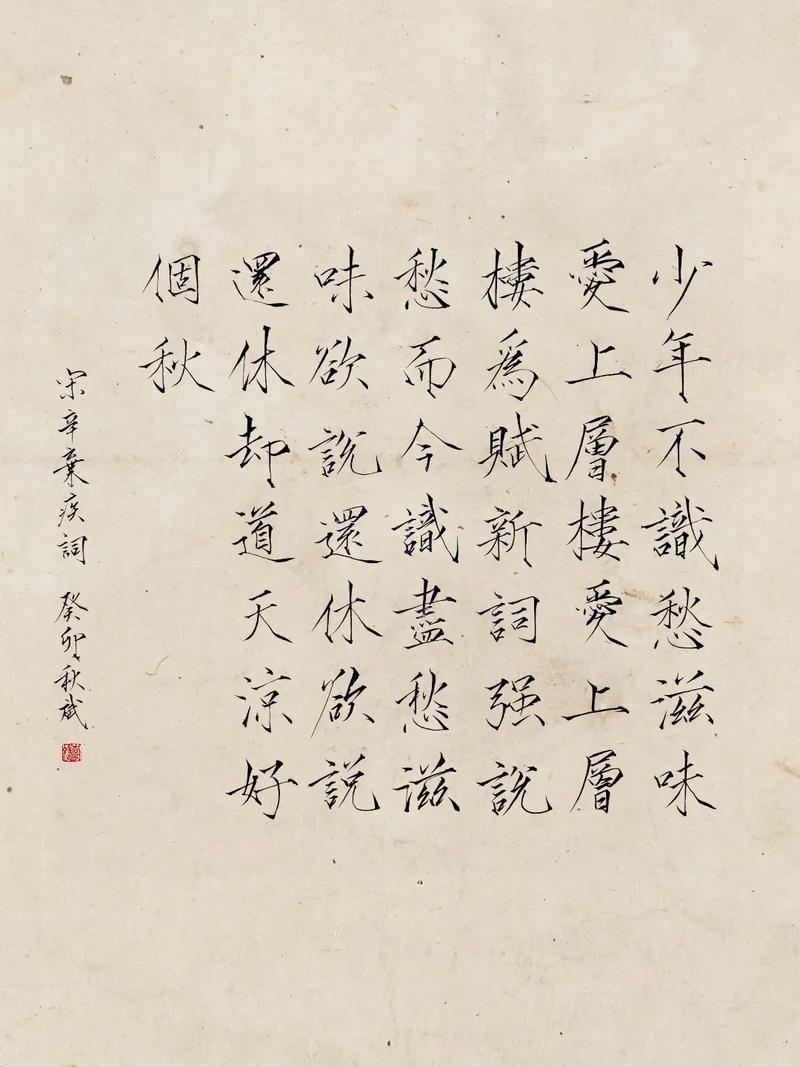 少年不識愁滋味
愛上層樓愛上層
樓爲賦新詞强說
愁而今識盡愁滋
味欲說還休欲說
還休却道天涼好
個秋
宋辛棄疾詞 癸卯秋斌